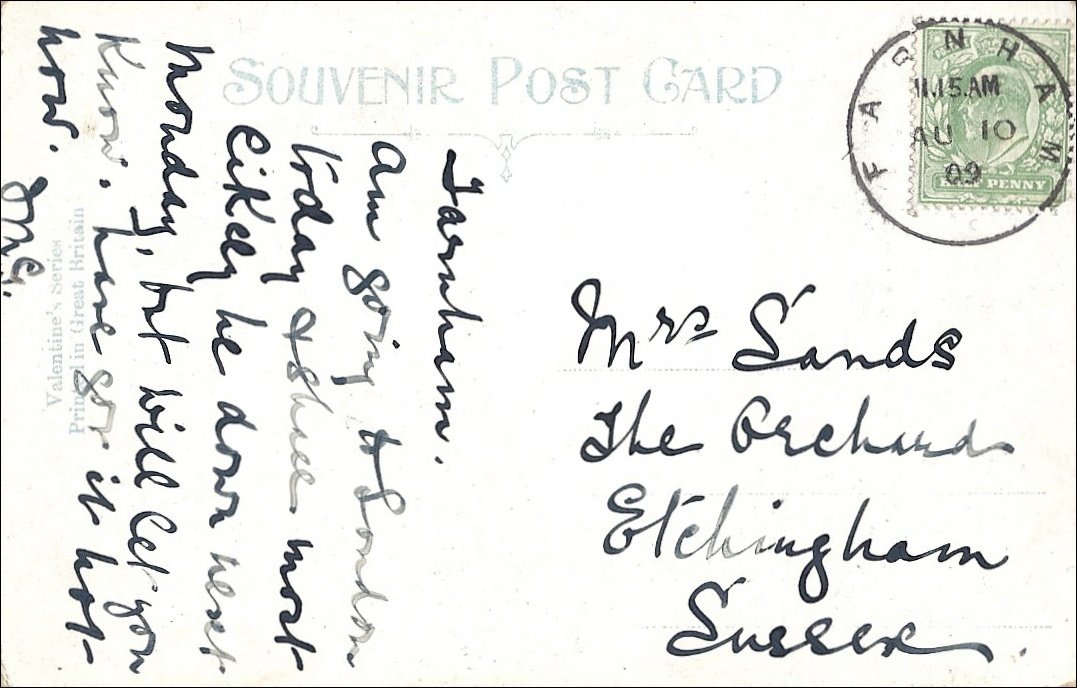 SOUVENIR POST CARD
FARNHAM
11.15.AM
AU 10
09
HALF PENNY
Farnham.
Am going to London
today & shall most
likely be down next
Monday, but will let you
know. have got it hot
now.
Valentine's Series
Printed in Great Britain
Mrs Sands
The Orchard
Etchingham
Sussex.